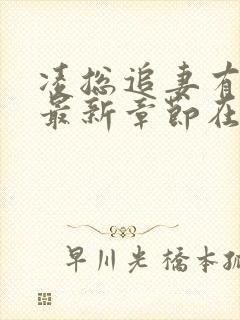 凌总追妻有
最新章节在
早川光橋本孤